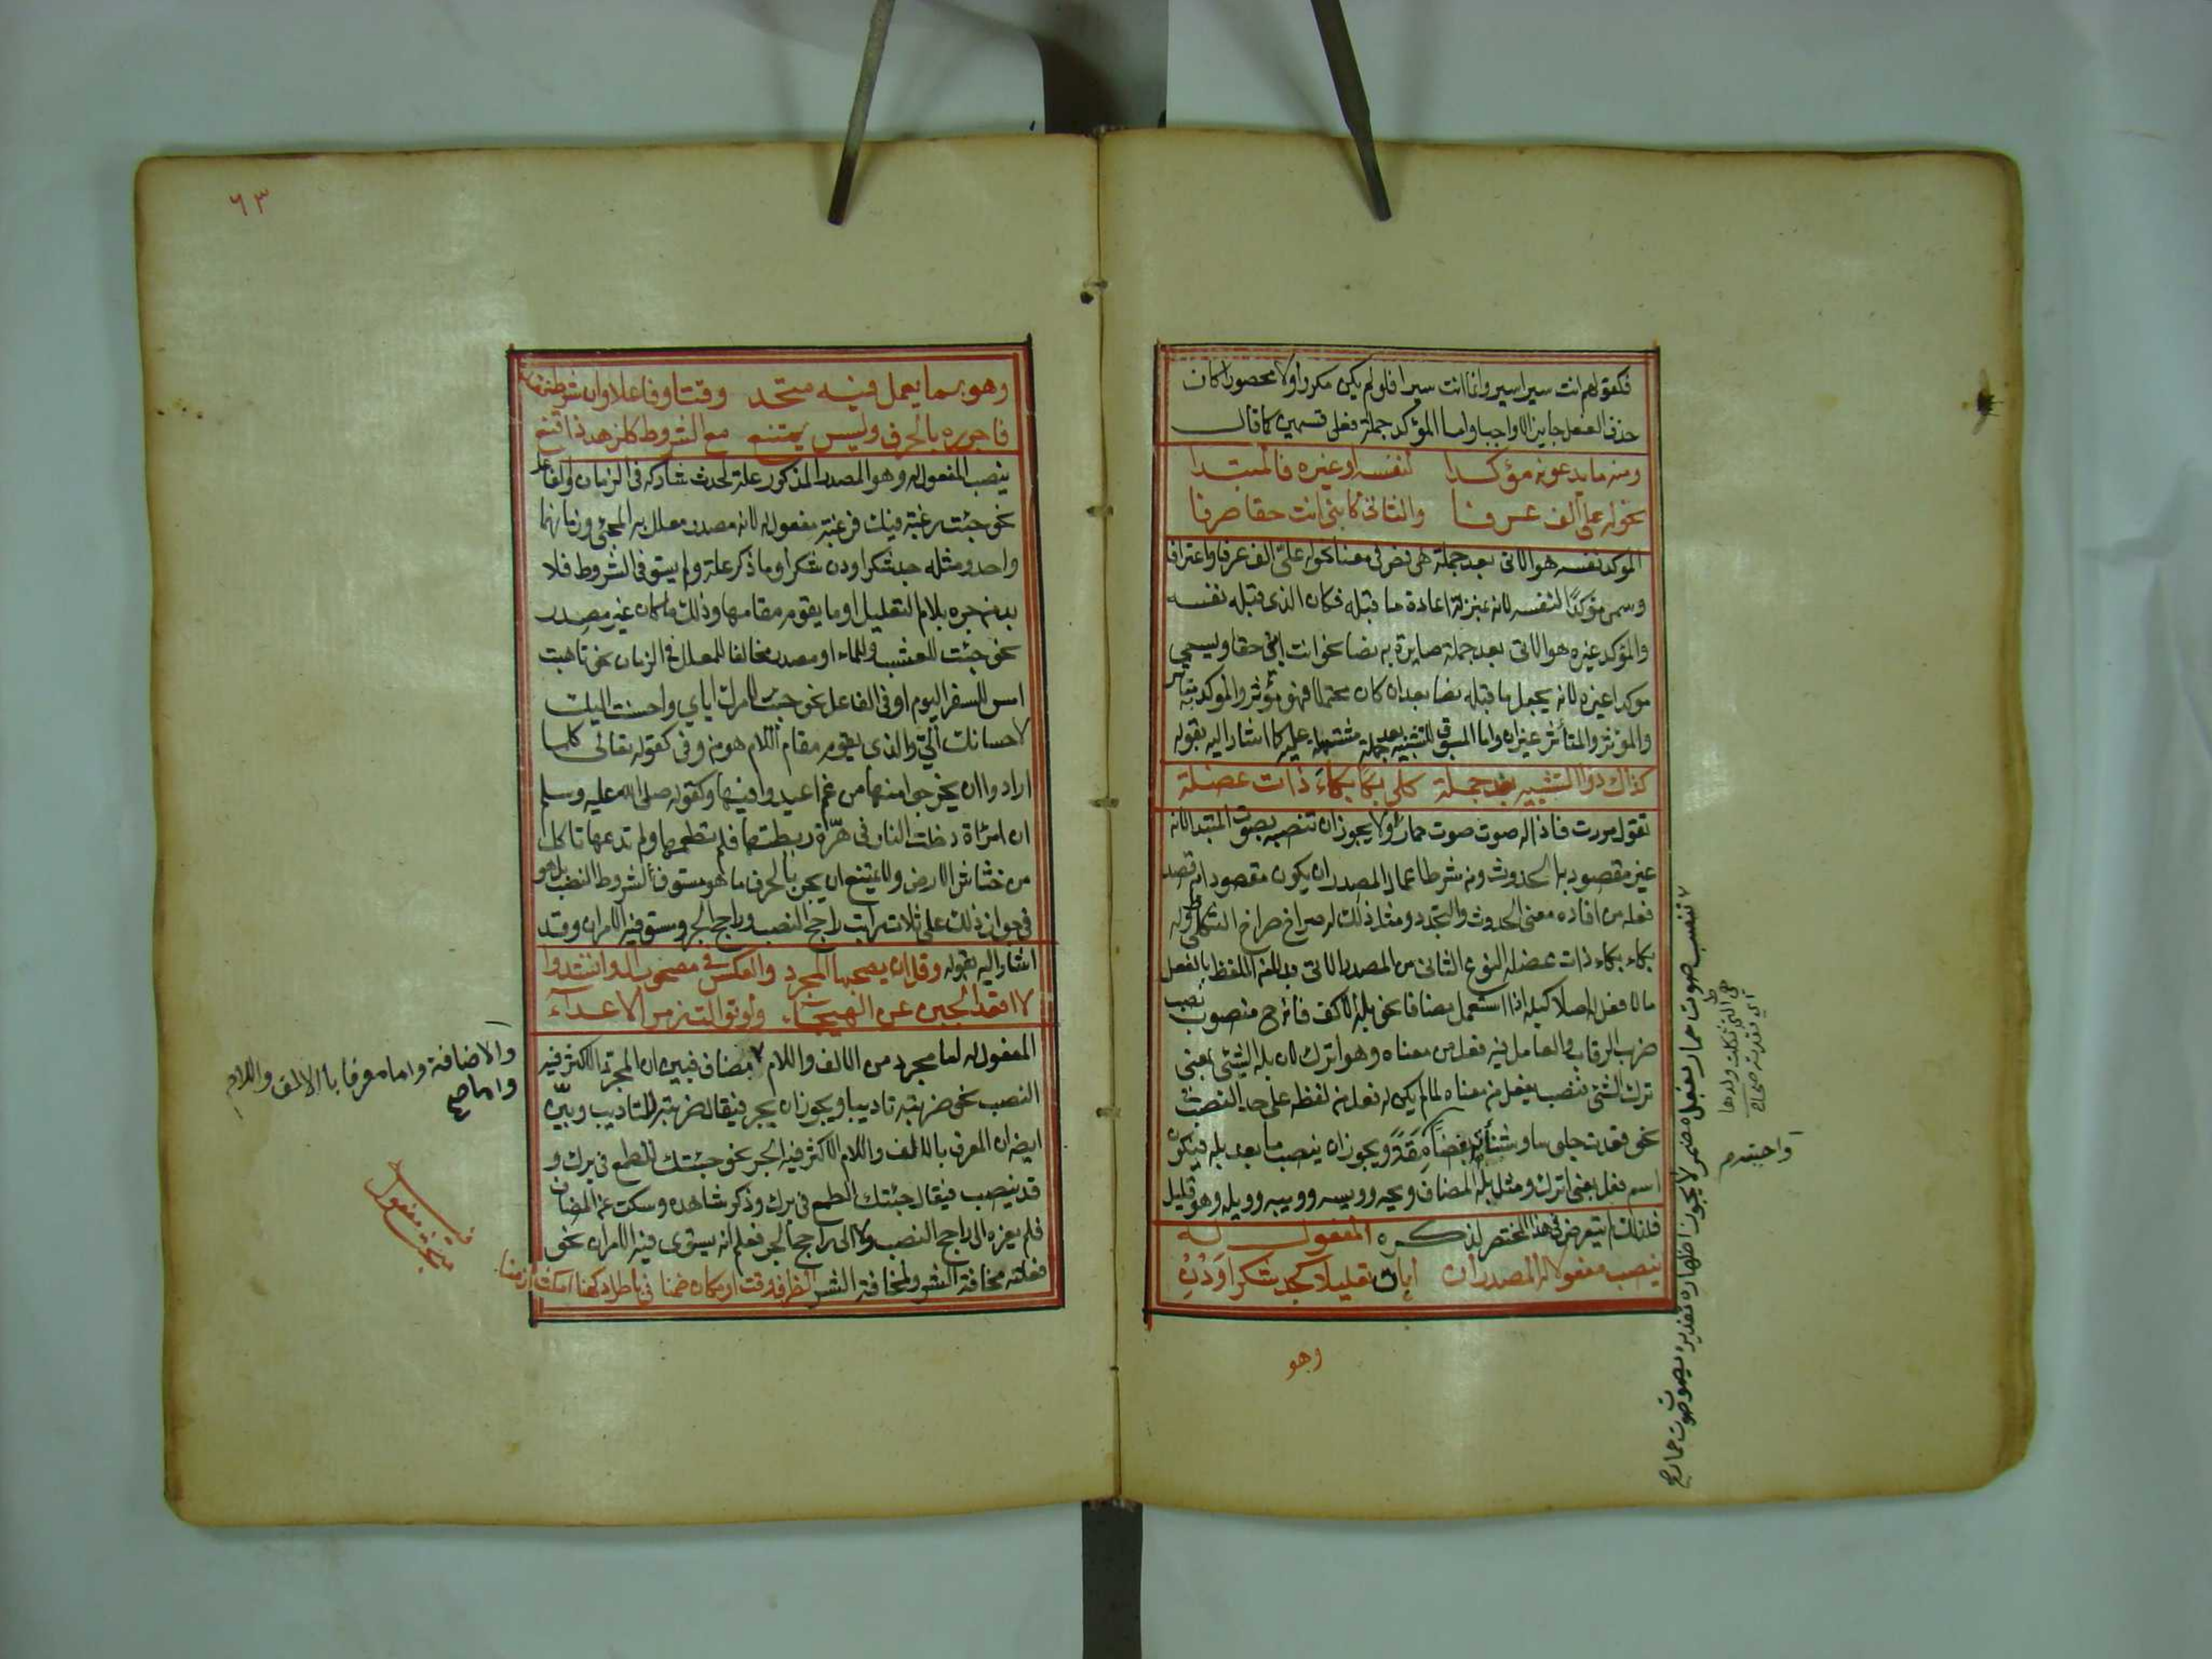 فكقولهم انت سيرا سيرا وانما انت سيرا فلو لم يكن مكررا ولا محصورا كان
حذف الفعل جايزا لا واجبا واما المؤكد جملة فعلى قسمين كما قال
ومنه ما يدعونه مؤكدا لنفسه او غيره فالمبتدا
نحو له علي الف عرفا والثاني كابني انت حقا صرفا
الموكد نفسه هو الاتي بعد جملة هي نص في معناه نحو له علي الف عرفا واعترافا
وسمي مؤكدا لنفسه لانه بمنزلة اعادة ما قبله فكان الذي قبله نفسه
والمؤكد غيره هو الاتي بعد جملة صايرة به نصا نحو انت ابني حقا ويسمى
موكدا غيره لانه يجعل ما قبله نصا بعد ان كان محتملا فهو مؤثر والموكد به متاثر
والمؤثر والمتأثر غيران واما المسوق للتشبيه بعد جملة مشتملة عليه كما اشار اليه بقوله
كذاك ذو التشبيه بعد جملة كلي بكا بكاء ذات عضلة
تقول مررت فاذا له صوت صوت حمار ولا يجوز ان تنصبه بصوت المبتدا لانه
غير مقصود به الحدوث ومن شرط اعمال المصدر ان يكون مقصودا به قصد
فعله من افاده معنى الحدوث والتجدد ومثل ذلك له صراخ صراخ الثكلى وله
بكاء بكاء ذات عضلة النوع الثاني من المصدر الاتي بدلا من اللفظ بالفعل
ما لا فعل له اصلا كبله اذا استعمل مضافا نحو بله الاكف فانه ح منصوب نصب
ضرب الرقاب والعامل فيه فعل من معناه وهو اترك لان بله الشئ بمعنى
ترك الشئ فنصب بفعل من معناه لما لم يكن له فعل من لفظه على حد النصب
نحو قعدت جلوسا وشنأته بغضا ومقته ويجوز ان ينصب ما بعد بله فيكون
اسم فعل بمعنى اترك ومثل بله المضاف ويحه وويسه وويبه وويله وهو قليل
فلذلك لم يتعرض في هذا المختصر لذكره المفعول له
ينصب مفعولا له المصدر ان ابان تعليلا كجد شكرا ودن
وهو
تنصب صوت حمار بفعل مضمر لا يجوز اظهاره تقديره يصوت صوت حمار صح
هي التي ثكلت ولدها
اي فقدته صحاح
واحببته م
٦٣
وهو بما يعمل فيه متحد وقتا وفاعلا وان شرط فقد
فاجرره بالحرف وليس يمتنع مع الشروط كلزهد ذا قنع
ينصب المفعول له وهو المصدر المذكور علة لحدث شاركه في الزمان والفاعل
نحو جئت رغبة فيك فرغبة مفعول له لانه مصدر معلل به المجئ وزمانهما
واحد ومثله جد شكرا ودن شكرا وما ذكر علة ولم يستوف الشروط فلا
بد من جره بلام التعليل او ما يقوم مقامها وذلك ما كان غير مصدر
نحو جئت للعشب وللماء او مصدر مخالفا للمعلل في الزمان نحو تاهبت
امس للسفر اليوم او في الفاعل نحو جئت لامرك اياي واحسنت اليك
لاحسانك الي والذي يقوم مقام اللام هو من وفي كقوله تعالى كلما
ارادوا ان يخرجوا منها من غم اعيدوا فيها وكقوله صلى الله عليه وسلم
ان امرأة دخلت النار في هرة ربطتها فلم تطعمها ولم تدعها تاكل
من خشاش الارض ولا يمتنع ان يجر بالحرف ما هو مستوف لشروط النصب بل هو
في جواز ذلك على ثلاث مراتب راجح النصب وراجح الجر ومستو فيه الامران وقد
اشار اليه بقوله وقل ان يصحبها المجرد والعكس في مصحوب ال وانشدوا
لا اقعد الجبن عن الهيجاء ولو توالت زمر الاعداء
المفعول له اما مجرد من الالف واللام مضاف فبين ان المجرد الاكثر فيه
النصب نحو ضربته تاديبا ويجوز ان يجر فيقال ضربته للتاديب وبين
ايضا ان المعرف بالالف واللام الاكثر فيه الجر نحو جئتك للطمع في برك و
قد ينصب فيقال جئتك الطمع في برك وذكر شاهده وسكت عن المضاف
فلم يعزه الى راجح النصب ولا الى راجح الجر فعلم انه يستوي فيه الامران نحو
فعلته مخافة الشر ولمخافة الشر الظرف وقت او مكان ضمنا في باطراد كهنا امكث ازمنا
والاضافة واما معرفا بالالف واللام
واما صح
مبحث مفعول فيه